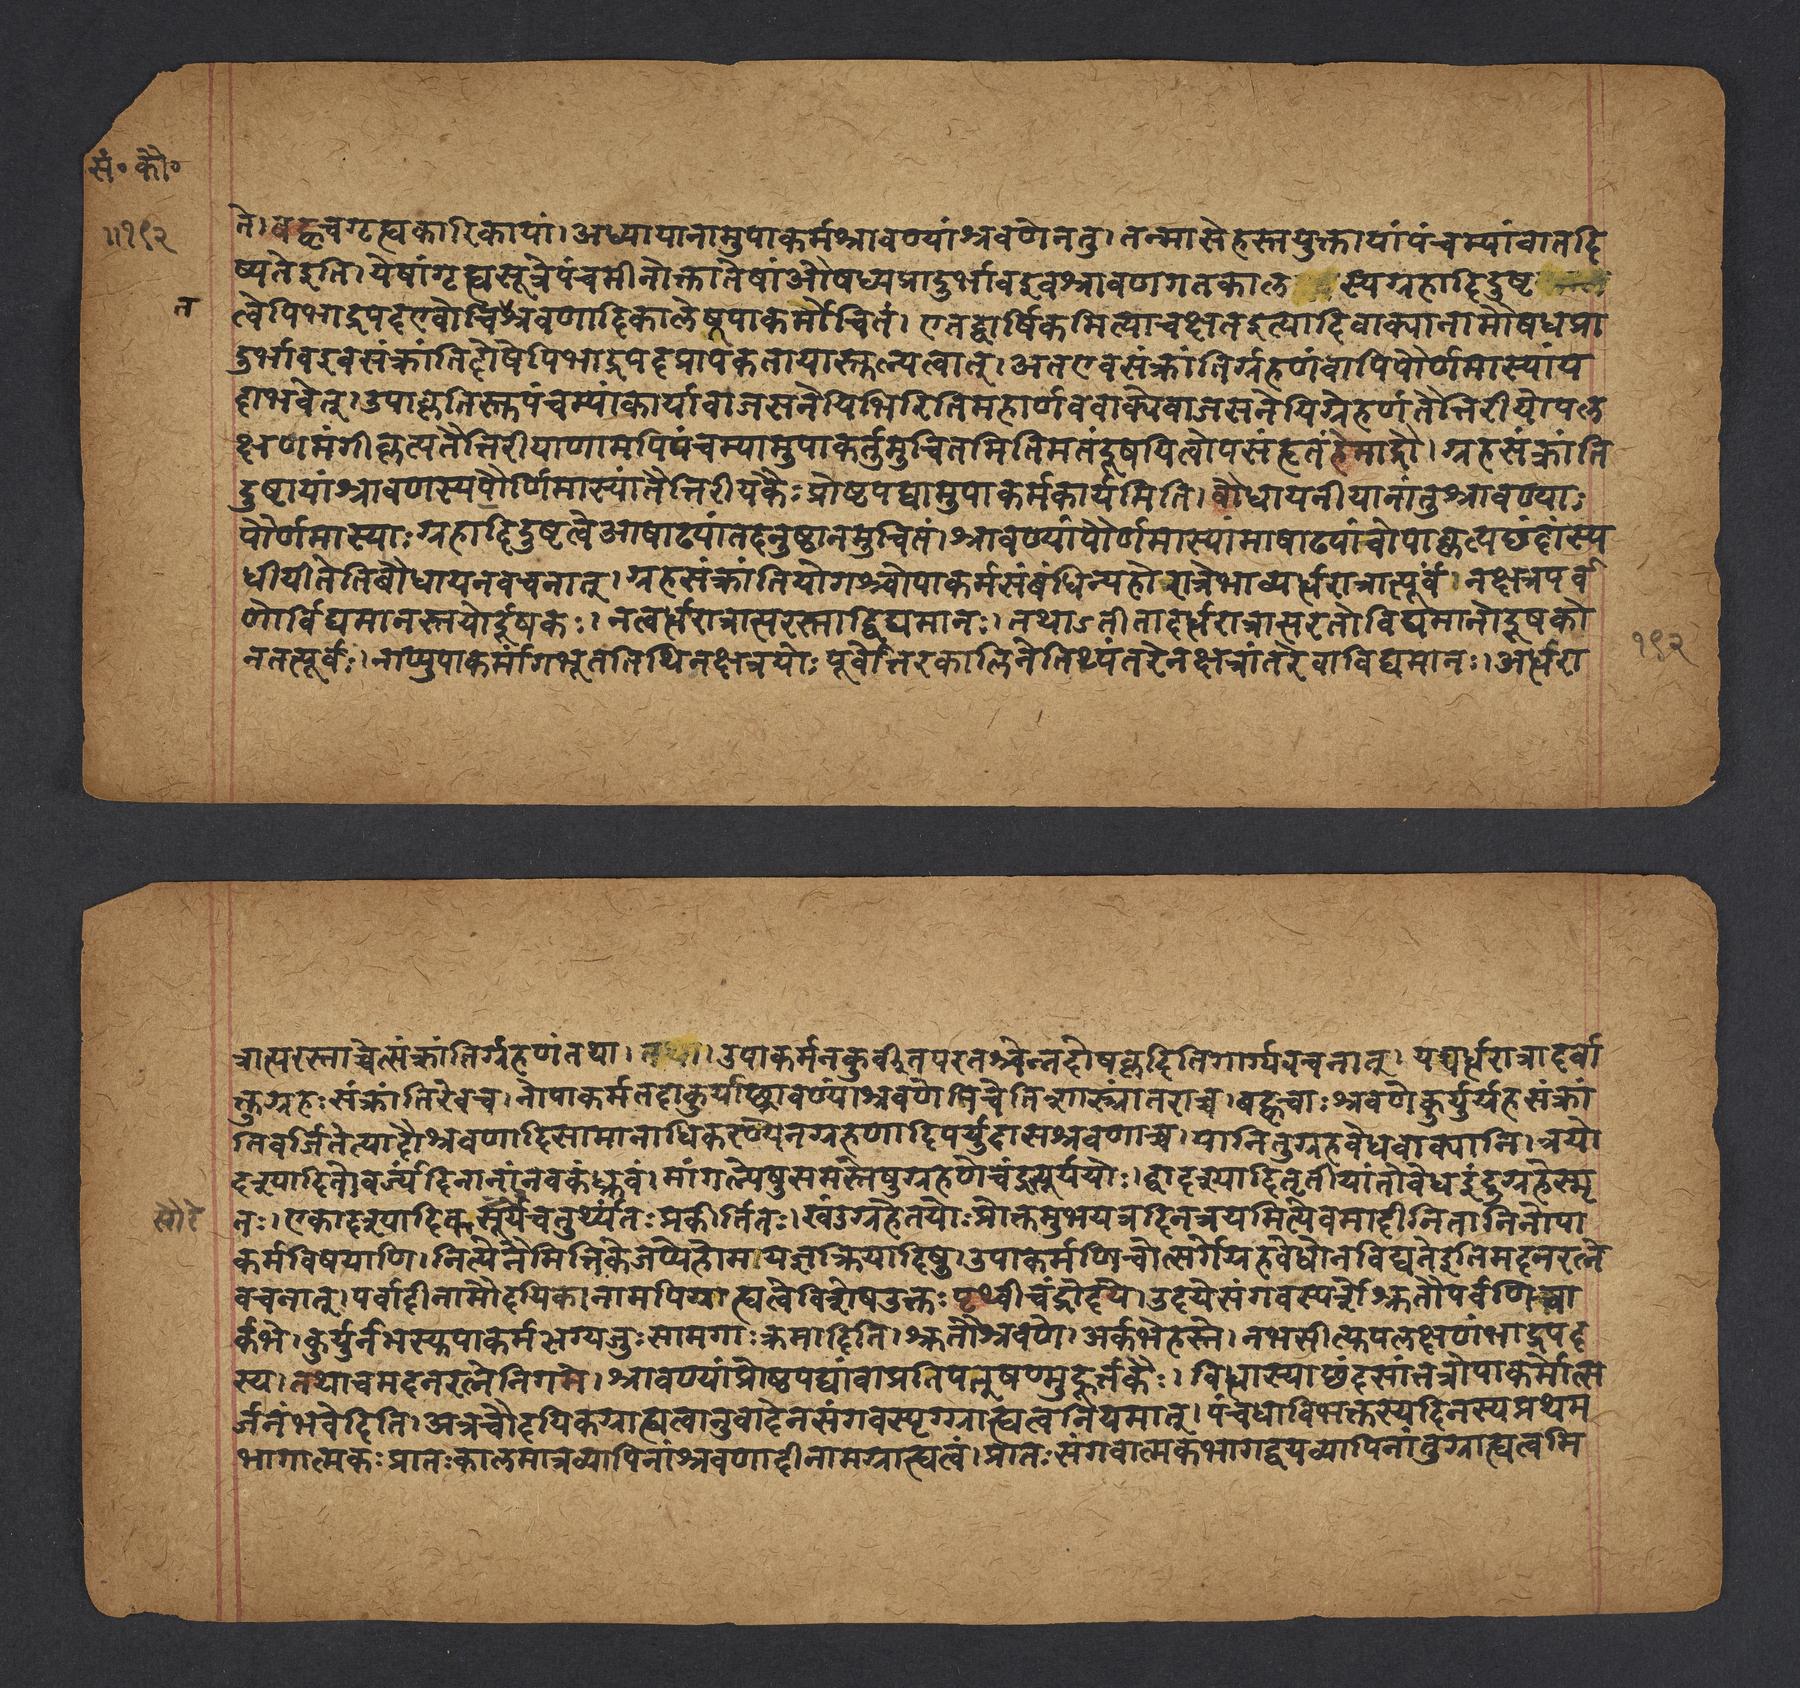 सं॰ कौ॰
॥१९२
ते। बह्वृचगृह्यकारिकायां। अध्यायानामुपाकर्मश्रावण्यांश्रवणेनतु। तन्मासेहस्तयुक्तायांपंचम्यांवातदि
ष्यतेइति। येषांगृह्यसूत्रेपंचमीनोक्तातेषांओषध्यप्रादुर्भावइवश्रावणगतकाल स्यग्रहादिदुष्ट
त
त्वेपिभाद्रपदएवोचितश्रवणादिकालेषूपाकर्मोचितं। एतद्वार्षिकमित्याचक्षतइत्यादिवाक्यानामोषधप्रा
दुर्भावइवसंक्रांतिदोषेपिभाद्रपदप्रापकतायास्तुल्यत्वात्। अतएवसंक्रांतिर्ग्रहणंवापिपौर्णमास्यांय
दाभवेत्। उपाकृतिस्तुपंचम्यांकार्यावाजसनेयिभिरितिमहार्णववाक्येवाजसनेयिग्रहणंतैत्तिरीयोपल
क्षणमंगीकृत्यतैत्तिरीयाणामपिपंचम्यामुपाकर्तुमुचितमितिमतंदूषयित्वोपसंहृतंहेमाद्रौ। ग्रहसंक्रांति
दुष्टायांश्रावणस्यपौर्णिमास्यांतैत्तिरीयकैः प्रोष्ठपद्यामुपाकर्मकार्यमिति। बौधायनीयानांतुश्रावण्याः
पौर्णमास्याः ग्रहादिदुष्टत्वेआषाढ्यांतदनुष्ठानमुचितं। श्रावण्यांपौर्णमास्यांमाषाढ्यांवोपाकृत्यछंदांस्य
धीयीतेतिबौधायनवचनात्। ग्रहसंक्रांतियोगश्चोपाकर्मसंबंधिन्यहोरात्रेभाव्यर्धरात्रात्पूर्वं। नक्षत्रपर्व
णोर्विद्यमानस्तयोर्दूषकः। नत्वर्धरात्रात्परस्ताद्विद्यमानः। तथाऽतीतादर्धरात्रात्परतोविद्यमानोदूषको
नतत्पूर्वः। नाप्युपाकर्मांगभूततिथिनक्षत्रयोः पूर्वोत्तरकालिनेतिथ्यंतरेनक्षत्रांतरेवाविद्यमानः। अर्धरा
१९२
त्रात्परस्ताच्चेत्संक्रांतिर्ग्रहणंतथा। तथा। उपाकर्मनकुर्वीतपरतश्चेन्नदोषकृदितिगार्ग्यवचनात्। यद्यर्धरात्रादर्वा
क्तुग्रहः संक्रांतिरेवच। नोपाकर्मतदाकुर्याच्छ्रावण्यांश्रवणेपिचेति गाच्च। बह्वृचाः श्रवणेकुर्युर्ग्रहसंक्रां
तिवर्जितेत्यादौश्रवणादिसामानाधिकरण्येनग्रहणादिपर्युदासश्रवणाच्च। यानितुग्रहवेधवाक्यानि। त्रयो
दश्यादितोवर्ज्यंदिनानांनवकंध्रुवं। मांगल्येषुसमस्तेषुग्रहणेचंद्रसूर्ययोः। द्वादश्यादितृतीयांतोवेधइंदुग्रहेस्मृ
सौरे
तः। एकादश्यादिकसूर्येचतुर्थ्यंतः प्रकीर्तितः। खंडग्रहेतयोः प्रोक्तमुभयत्रदिनत्रयमित्येवमादीनितानिनोपा
कर्मविषयाणि। नित्येनैमित्तिकेजप्येहोमयज्ञक्रियादिषु। उपाकर्मणिचोत्सर्गेग्रहवेधोनविद्यतेइतिमदनरत्ने
वचनात्। पर्वादीनामौदयिकानामपिग्राह्यत्वेविशेषउक्तः पृथ्वीचंद्रोदये। उदयेसंगवस्पर्शेश्रुतौपर्वणिचा
र्कभे। कुर्युर्नभस्युपाकर्मऋग्यजुः सामगाः क्रमादिति। श्रुतौश्रवणे। अर्कभेहस्ते। नभसीत्युपलक्षणंभाद्रपद
स्य। तथाचमदनरत्नेनिगमे। श्रावण्यांप्रौष्ठपद्यांवाप्रतिपत्षण्मुहूर्तकैः। विद्धास्याछंदसांतत्रोपाकर्मोत्स
र्जनंभवेदिति। अत्रचौदयिकग्राह्यत्वानुवादेनसंगवस्पृग्ग्राह्यत्वनियमात्। पंचधाविभक्तस्यदिनस्यप्रथम
भागात्मकः प्रातःकालमात्रव्यापिनांश्रवणादीनामग्राह्यत्वं। प्रातः संगवात्मकभागद्वयव्यापिनांतुग्राह्यत्वमि